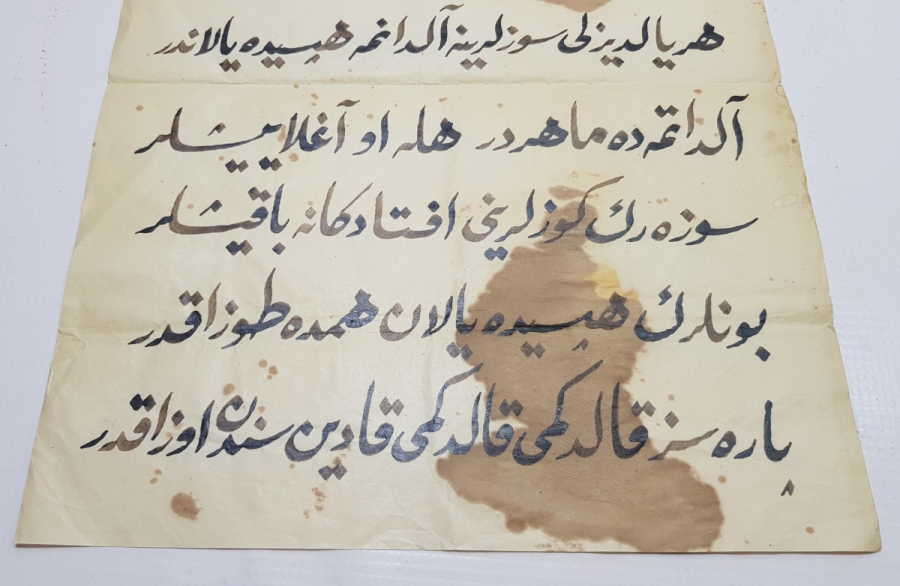 هر یالدیزلی سوزلرینه آلدانمه هبسیده یالاندر
آلداتمه ده ماهردر هله او آغلاییشلر
سوزه رك كوزلرینی افتادكانه باقیشلر
بونلرك هبسیده یالان همده طوزاقدر
پاره سز قالدكمی قالدكمی قادین سندن اوزاقدر